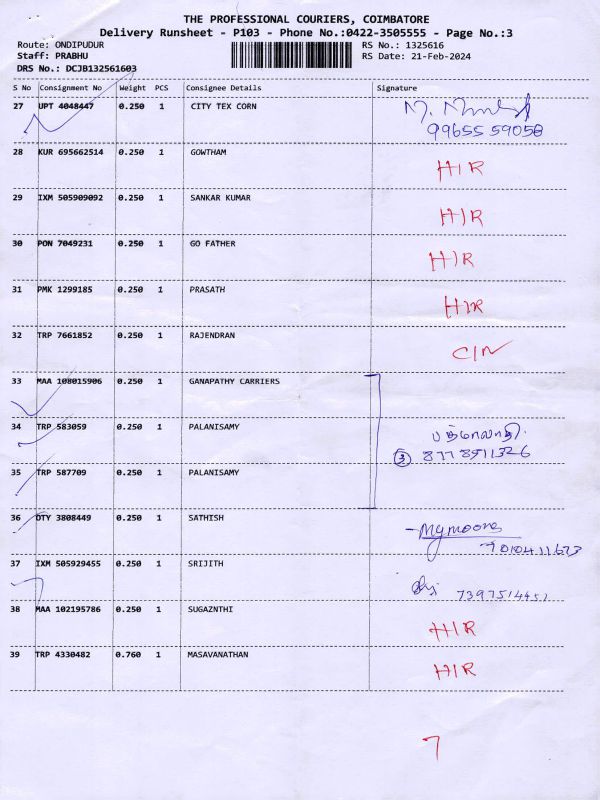 THE PROFESSIONAL COURIERS, COIMBATORE
Delivery Runsheet - P103 - Phone No.:0422-3505555 - Page No.:3
Route: ONDIPUDUR RS No.: 1325616
Staff: PRABHU RS Date: 21-Feb-2024
DRS No.: DCJB132561603
S No Consignment No Weight PCS Consignee Details Signature
27 UPT 4048447 0.250 1 CITY TEX CORN
99655 59058
28 KUR 695662514 0.250 1 GOWTHAM HIR
29 IXM 505909092 0.250 1 SANKAR KUMAR HIR
30 PON 7049231 0.250 1 GO FATHER HIR
31 PMK 1299185 0.250 1 PRASATH HIR
32 TRP 7661852 0.250 1 RAJENDRAN CIN
33 MAA 108015906 0.250 1 GANAPATHY CARRIERS
34 TRP 583059 0.250 1 PALANISAMY
3
35 TRP 587709 0.250 1 PALANISAMY
36 OTY 3808449 0.250 1 SATHISH
37 IXM 505929455 0.250 1 SRIJITH
38 MAA 102195786 0.250 1 SUGAZNTHI HIR
39 TRP 4330482 0.760 1 MASAVANATHAN HIR
7